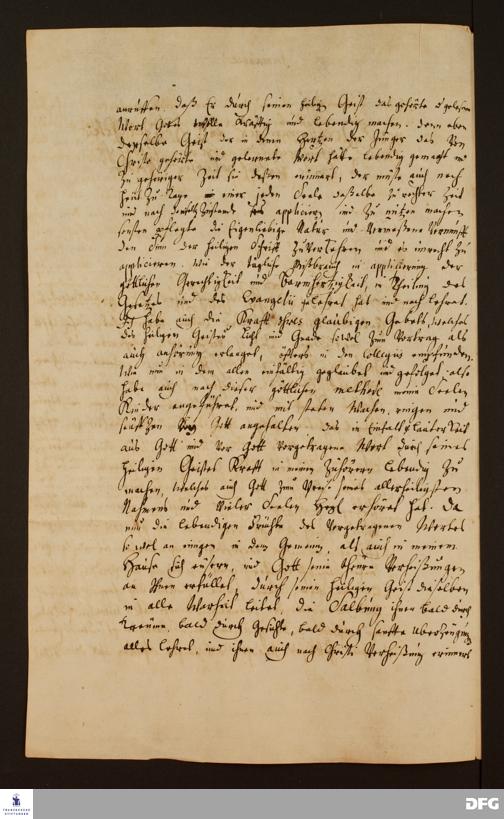 anruffen, daß Er durch seinen heiligen Geist das gehörte od. gelesene
Wort Gottes wolle kräfftig und lebendig machen. denn eben
derselbe Geist der in denen Hertzen der Jünger das von
Christo gehörte und gelernete Wort hatte lebendig gemacht und
zu gehöriger Zeit sie deßen erinnert, der müste auch noch
heut zu Tage in einer jeden Seele daßelbe zu rechter Zeit
und nach Zustande appliciren und zu nützen machen
sonsten pflegte die Eigenliebige Natur und Vernunfft
den Sinn der heiligen Schrifft zu verkehren und es unrecht zu
appliciren. wie der tägliche Mißbrauch in applicirung der
göttlichen Gerechtigkeit und Barmhertzigkeit, in Theilung des
Gesetzes und des Evangelii gelehret hat und noch lehret.
Ich habe auch die Krafft gläubigen Gebets, welches
des heiligen Geistes Licht und Gnade sowol zum Vortrag als
auch anhörung erlanget, öffters in den Collegiis empfunden.
Wie nun in dem allen einfältig geglaubet und gefolget, also
habe auch nach dieser göttlichen methode meine Seelen
Kinder angeführet, und mit steten Wachen, ringen und
seufftzen bey Gott angehalten das in Einfalt u. Lauterkeit
aus Gott und vor Gott vorgetragene Wort durch seines
heiligen Geistes Krafft in meinen Zuhörern lebendig zu
machen, welches auch Gott zum Preise seines allerheiligsten
Nahmens und vieler Seelen Heyl erhöret hat. Da
nun die lebendigen Früchte des vorgetragenen Wortes
so wol an einigen in dem Gemeinen, als auch in meinem
Hause sich eusern, und Gott seine theure Verheißungen
an Ihnen erfüllet, durch seinen heiligen Geist dieselben
in alle Warheit leitet, die Salbung ihnen bald durch
Träume bald durch Gesichte, bald durch sanffte Uberzeugung
alles lehret, und ihnen auch nach Christi Verheißung erinnert
FRANCKESCHE STIFTUNGEN
DFG